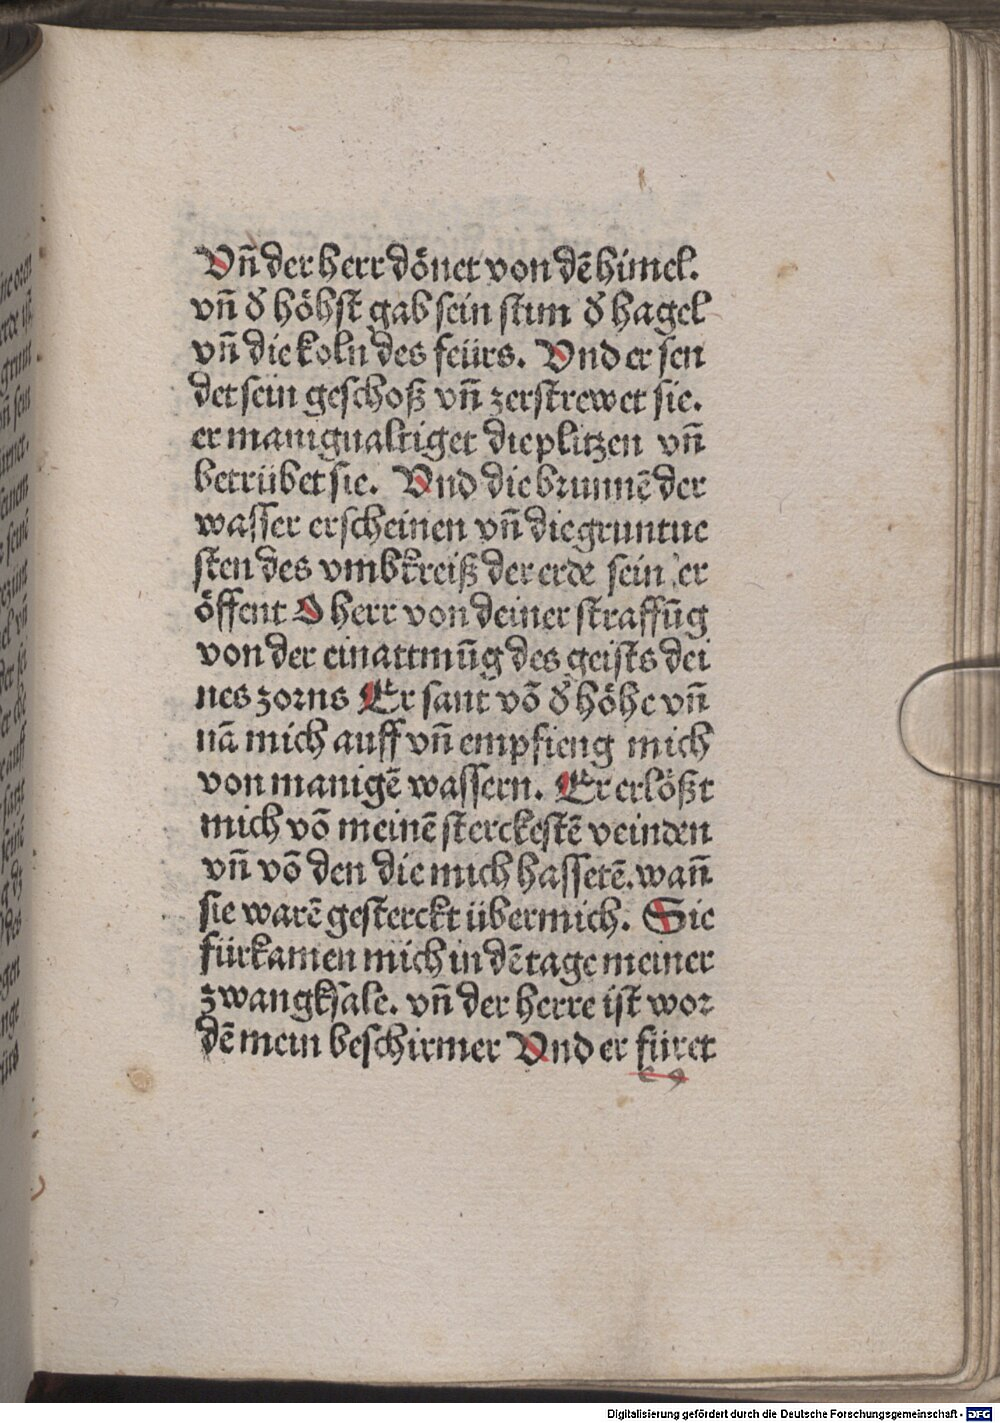 Vñ der herr dönet von dē himel.
vñ d̕ höhst gab sein stim d̕ hagel
vñ die koln des feürs. Vnd er sen
det sein geschoß vñ zerstrewet sie.
er manigualtiget die plitzen vñ
betrübet sie. Vnd die brunnē der
wasser erscheinen vñ die gruntue
sten des vmbkreiß der erde sein er
öffent O herr von deiner straffūg
von der einattmūg des geists dei
nes zorns Er sant vō d̕ höhe vñ
nā mich auff vñ empfieng mich
von manigē wassern. Er erlößt
mich vō meinē sterckestē veinden
vñ vō den die mich hassetē. wañ
sie warē gesterckt über mich. Sie
fürkamen mich in dē tage meiner
zwangksale. vñ der herre ist wor
dē mein beschirmer Vnd er füret
Digitalisierung gefördert durch die Deutsche Forschungsgemeinschaft - DFG